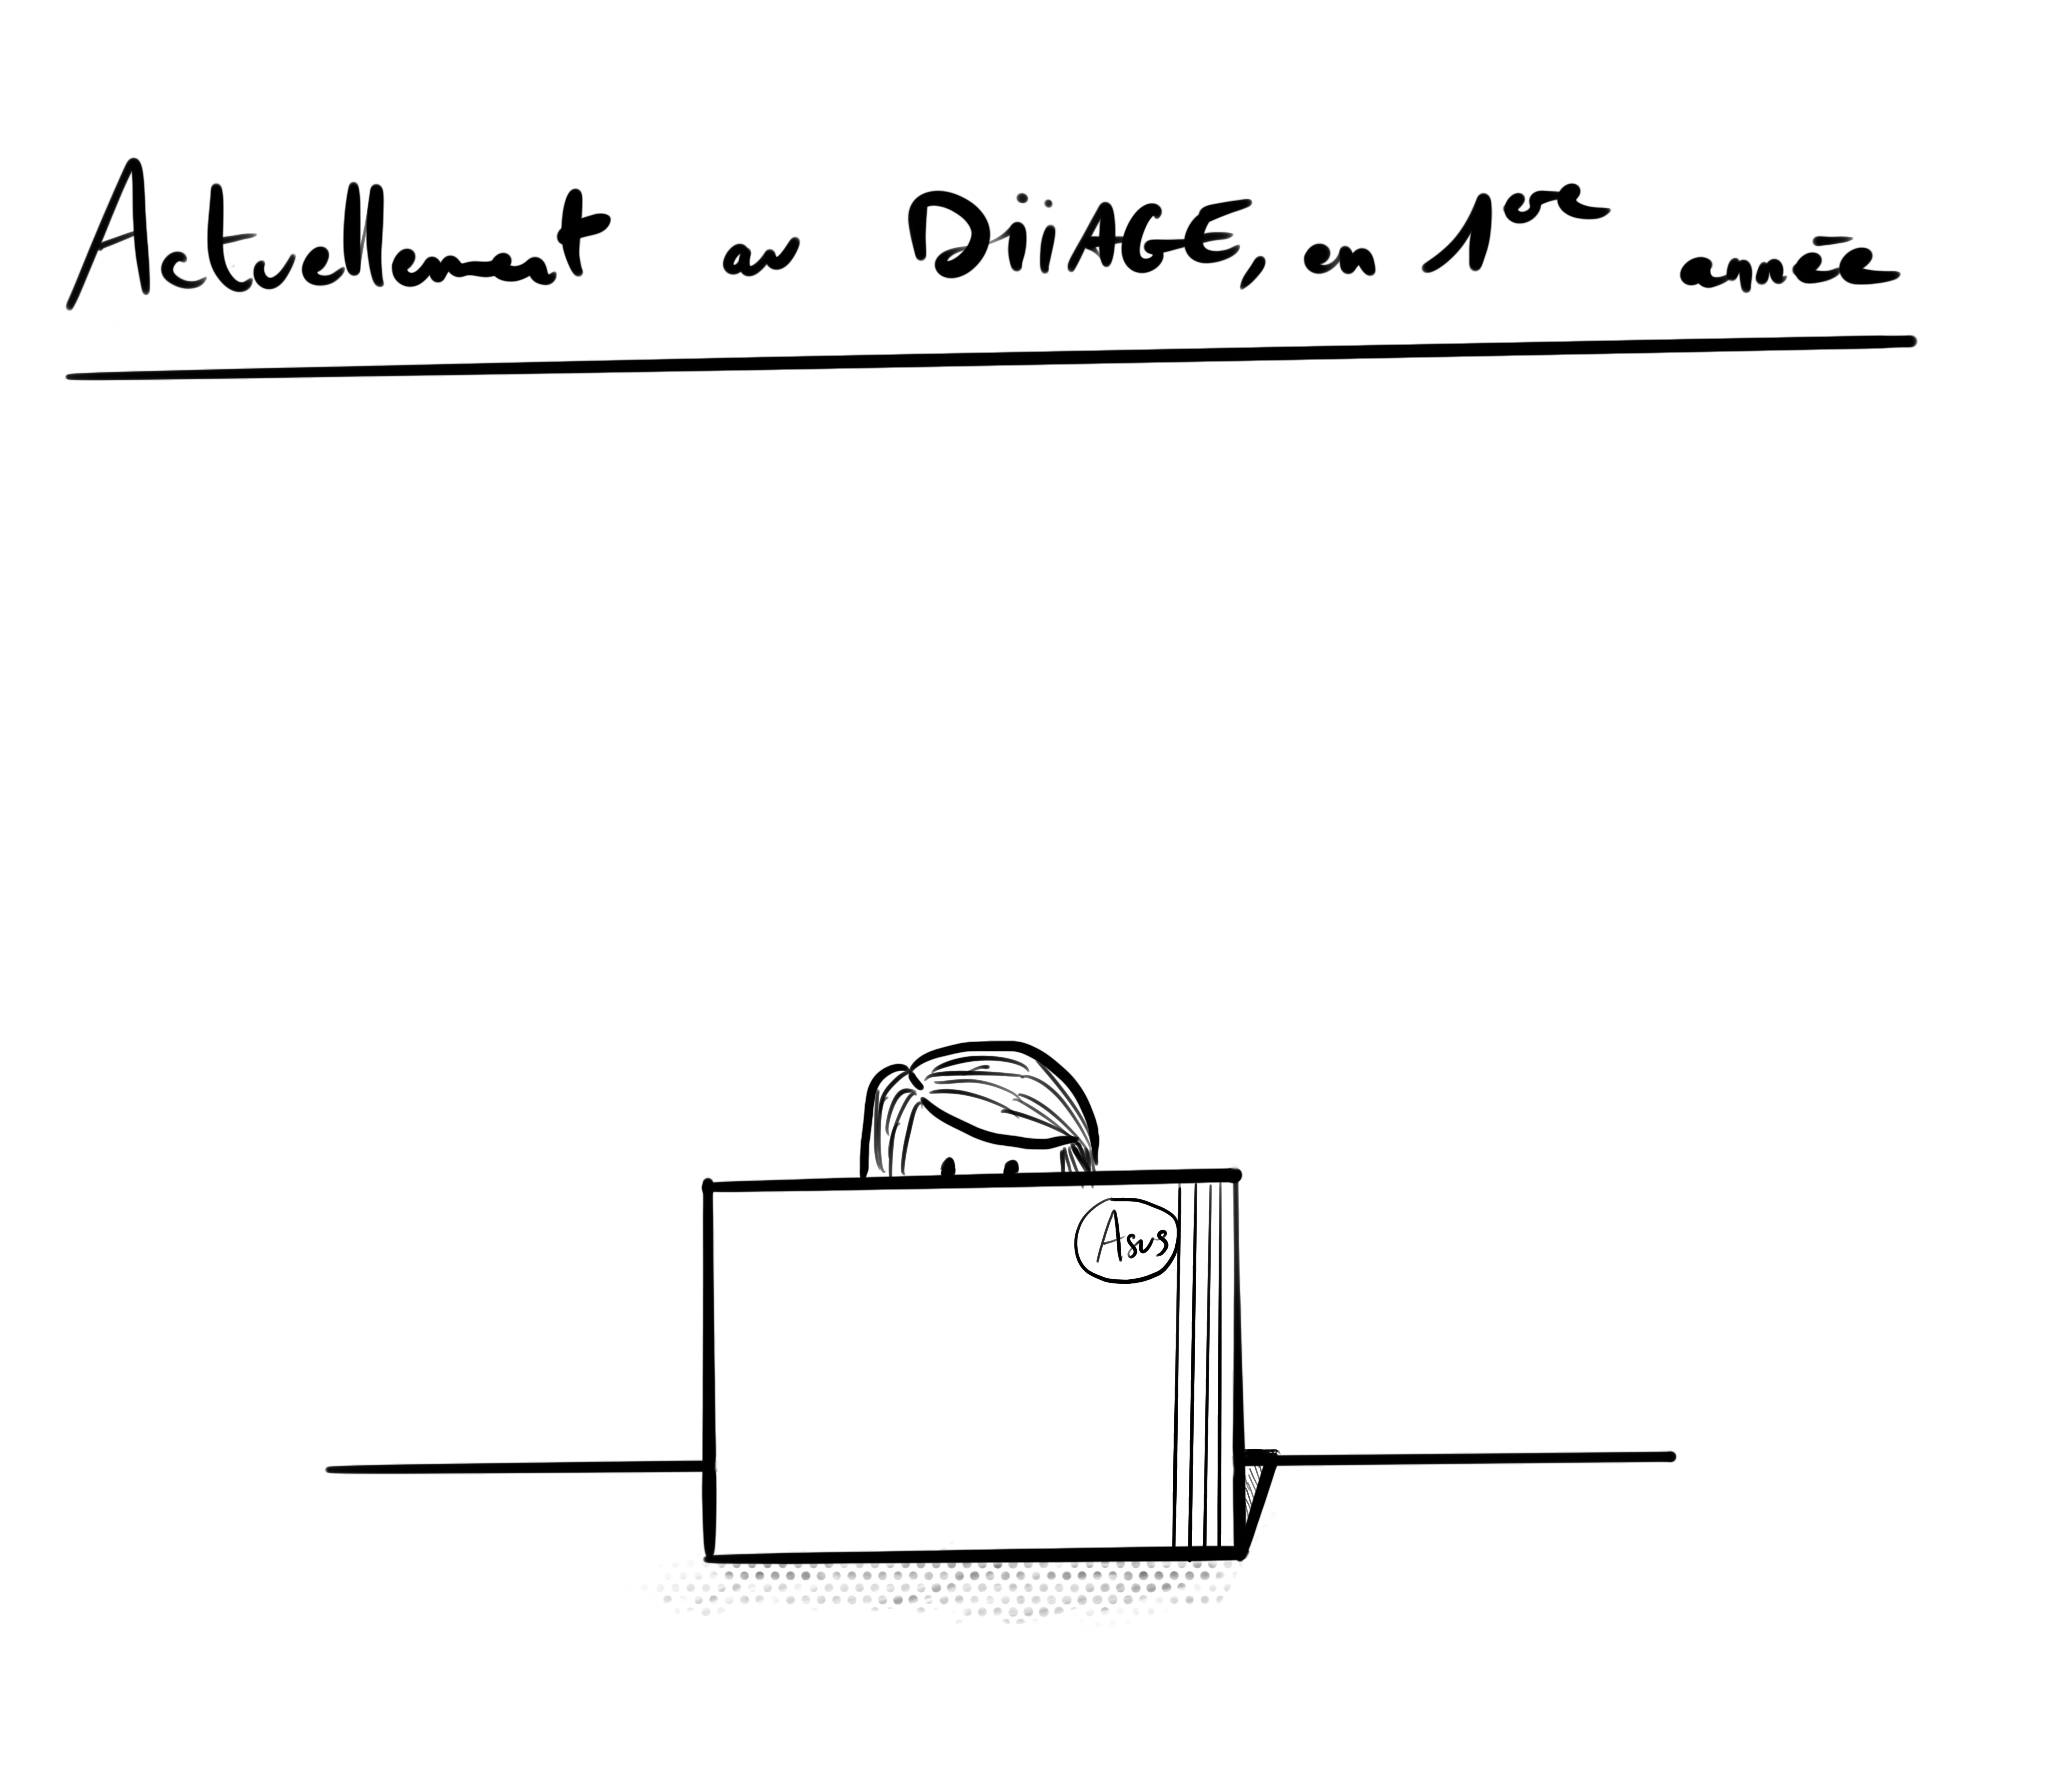 Actuellement au DiiAGE, en 1ère année
Asus